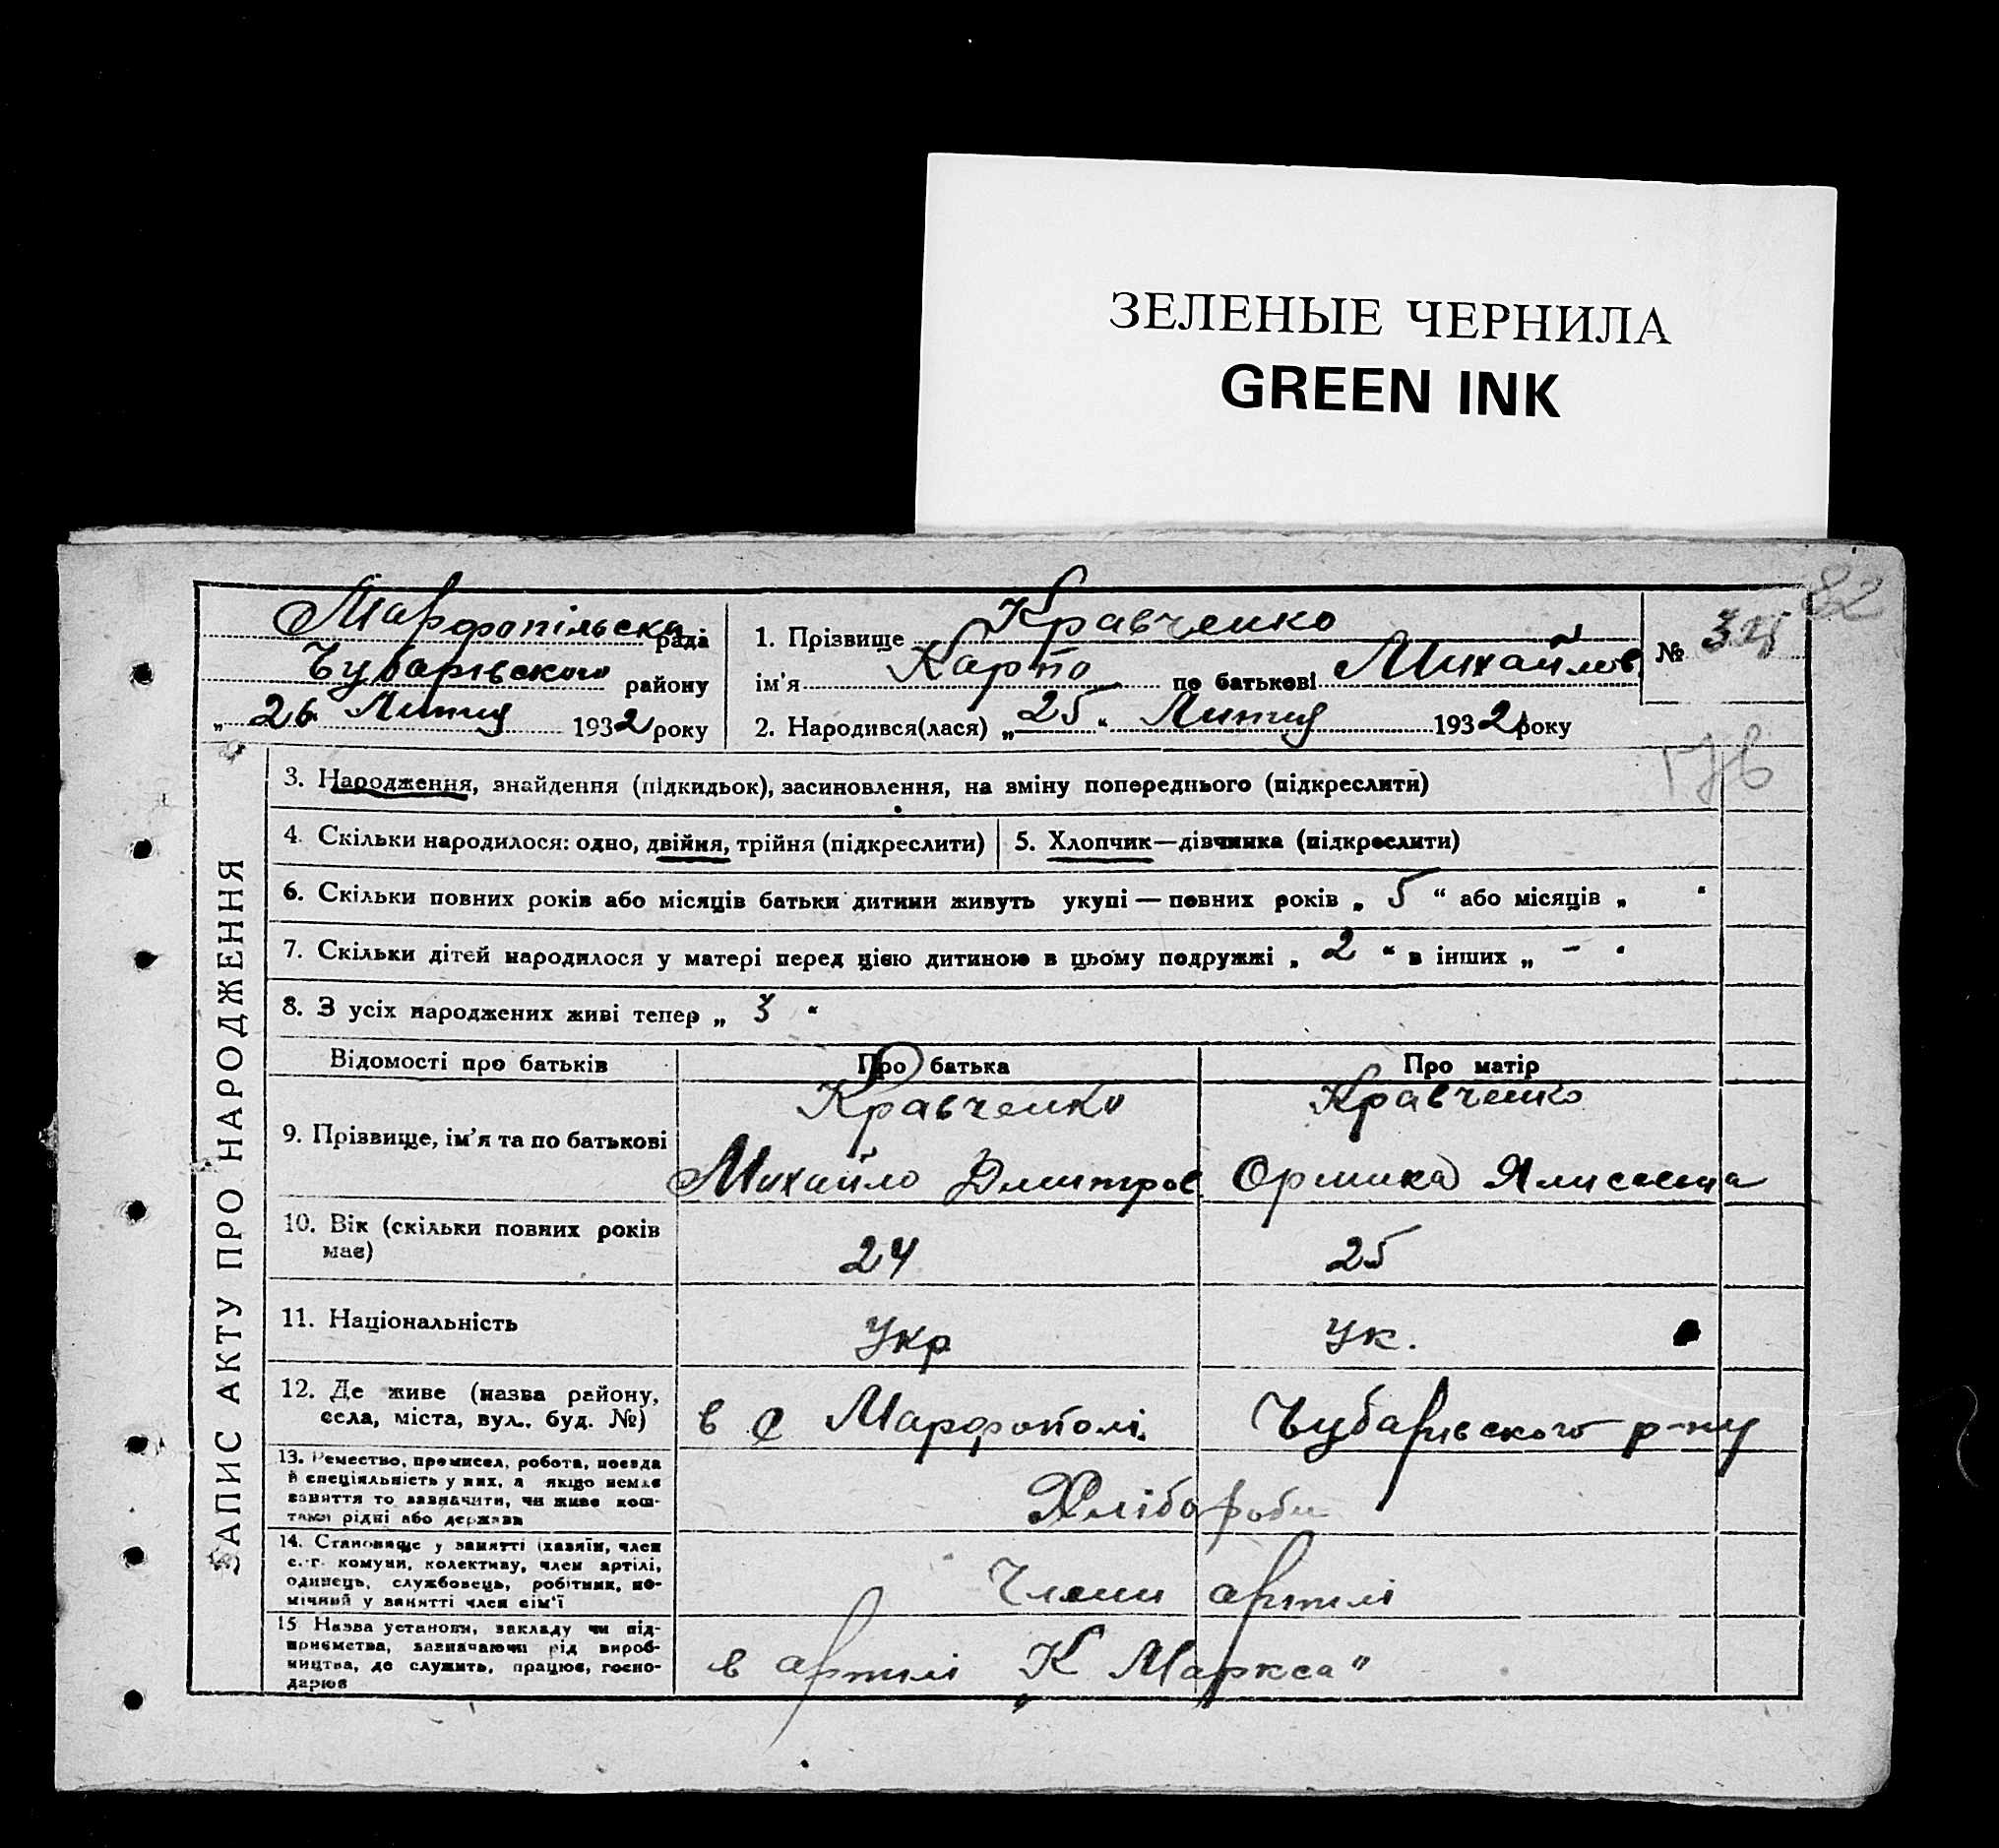 ЗЕЛЕНЫЕ ЧЕРНИЛА
GREEN INK
82
Марфопільська рада
Чубарівського району
„ 26 Липця 1932 року
1. Прізвище Кравченко
ім'я Карпо по батькові Михайлов
2. Народився(лася) „ 25 “ Липця 1932 року
№
ЗАПИС АКТУ ПРО НАРОДЖЕННЯ
3. Народження, знайдення (підкидьок), засиновлення, на вміну попереднього (підкреслити)
4. Скільки народилося: одно, двійня, трійня (підкреслити)
5. Хлопчик—дівчинка (підкреслити)
6. Скільки повних років або місяців батьки дитини живуть укупі — повних років „ 5 “ або місяців „ “
7. Скільки дітей народилося у матері перед цією дитиною в цьому подружжі „ 2 “ в інших „ – “
8. З усіх народжених живі тепер „ 3 “
Відомості про батьків Про батька Про матір
9. Прізвище, ім'я та по батькові
Кравченко Кравченко
Михайло Дмитров Оришка
10. Вік (скільки повних років має)
24 25
11. Національність
Укр Ук.
12. Де живе (назва району,
села, міста, вул., буд. №)
в с Марфополі Чубарівського р-ну
13. Ремество, промисел, робота, посада
й спеціяльність у них, а якщо немає
заняття то зазначити, чи живе кош-
тами рідні або держави
Хлібороби
14. Становище у занятті (хазяїн, член
с.-г. комуни, колективу, член артілі,
одинець, службовець, робітник, по-
мічний у занятті член сім'ї
Члени артилі
15 Назва установи, закладу чи під-
приємства, зазначаючи рід вироб-
ництва, де служить, працює, госпо-
дарює
в артилі „К Маркса“